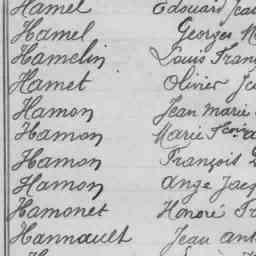 Hamel Edouard Jean
Hamel Georges M
Hamelin Louis Franç
Hamet Olivier Ju
Hamon Jean Marie
Hamon Marie Fçois
Hamon François
Hamon Ange Jacq
Hamonet Honoré Fr
Hannault Jean Ant